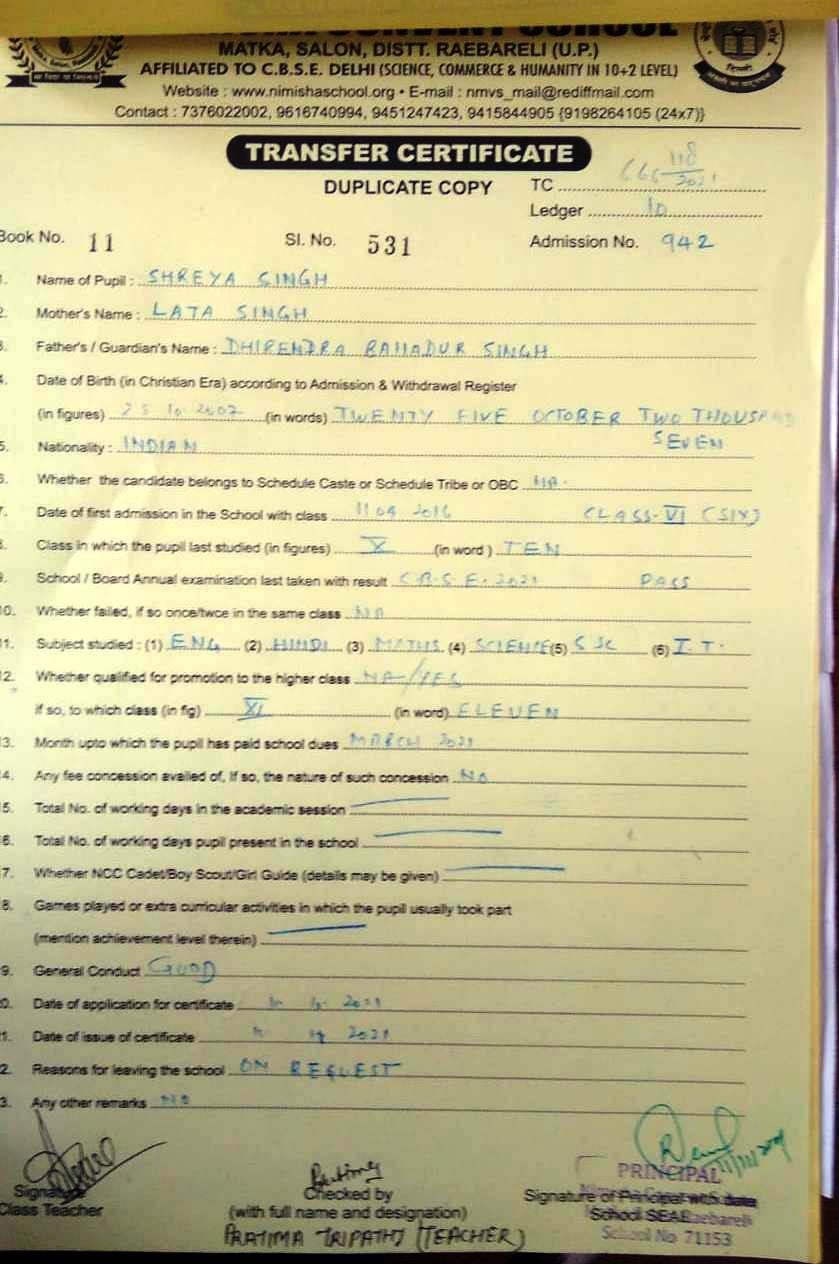 CONVENT SCHOOL
MATKA, SALON, DISTT. RAEBARELI (U.P.)
AFFILIATED TO C.B.S.E. DELHI (SCIENCE, COMMERCE & HUMANITY IN 10+2 LEVEL)
Website : www.nimishaschool.org • E-mail : nmvs_mail@rediffmail.com
Contact : 7376022002, 9616740994, 9451247423, 9415844905 {9198264105 (24x7)}
TRANSFER CERTIFICATE
DUPLICATE COPY TC 118 2021
Ledger 10
Book No. 11 Sl. No. 531 Admission No. 942
Name of Pupil : SHREYA SINGH
2. Mother's Name : LATA SINGH
Father's / Guardian's Name : DHIRENDRA BAHADUR SINGH
4. Date of Birth (in Christian Era) according to Admission & Withdrawal Register
(in figures) 25 10 2007 (in words) TWENTY FIVE OCTOBER TWO THOUSAND
SEVEN
5. Nationality : INDIAN
6. Whether the candidate belongs to Schedule Caste or Schedule Tribe or OBC NA.
7. Date of first admission in the School with class 2016 CLASS-VI (SIX)
8. Class in which the pupil last studied (in figures) X (in word ) TEN
9. School / Board Annual examination last taken with result C.B.S.E. 2021 PASS
10. Whether failed, if so once/twce in the same class NO
11. Subject studied : (1) ENG (2) HINDI (3) MATHS (4) SCIENCE (5) SSC (6) I.T.
12. Whether qualified for promotion to the higher class NA/YES
if so, to which class (in fig) XI (in word) ELEVEN
13. Month upto which the pupil has paid school dues MARCH 2021
4. Any fee concession availed of, If so, the nature of such concession NO
5. Total No. of working days in the academic session
6. Total No. of working days pupil present in the school
7. Whether NCC Cadet/Boy Scout/Girl Guide (details may be given)
8. Games played or extra curricular activities in which the pupil usually took part
(mention achievement level therein)
9. General Conduct GOOD
0. Date of application for certificate 2021
1. Date of issue of certificate 2021
2. Reasons for leaving the school ON REQUEST
3. Any other remarks NO
PRINCIPAL
Signature Checked by Signature of Principal with date
Class Teacher (with full name and designation) School SEAL Raebareli
PRATIMA TRIPATHI (TEACHER) School No 71153